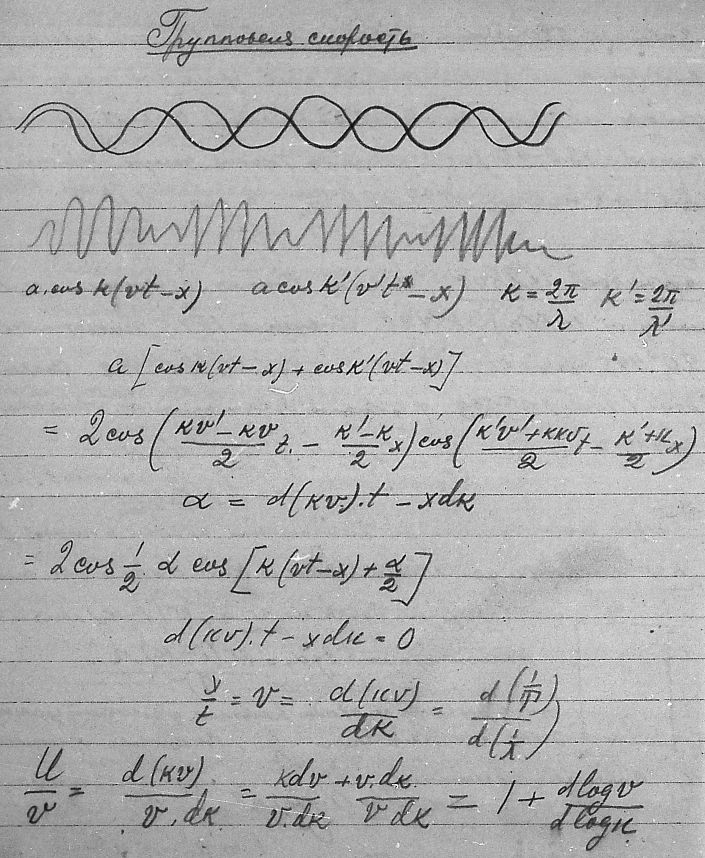 Групповая скорость
a cos к(vt−x) a cos к'(v't−x) к = 2π/λ к' = 2π/λ'
a [cos к(vt−x) + cos к'(vt−x)]
= 2 cos ( (кv'−кv)/2 t − (к'−к)/2 x ) cos ( (к'v'+ккv)/2 t − (к'+к)/2 x )
α = d(кv).t − xdк
= 2 cos 1/2 α cos [к(vt−x) + α/2]
d(кv).t − xdк = 0
x/t = v = d(кv)/dк = d(1/τ)/d(1/λ)
U/v = d(кv)/v.dк = кdv/v.dк + v.dк/v dк = 1 + dlogv/dlogк